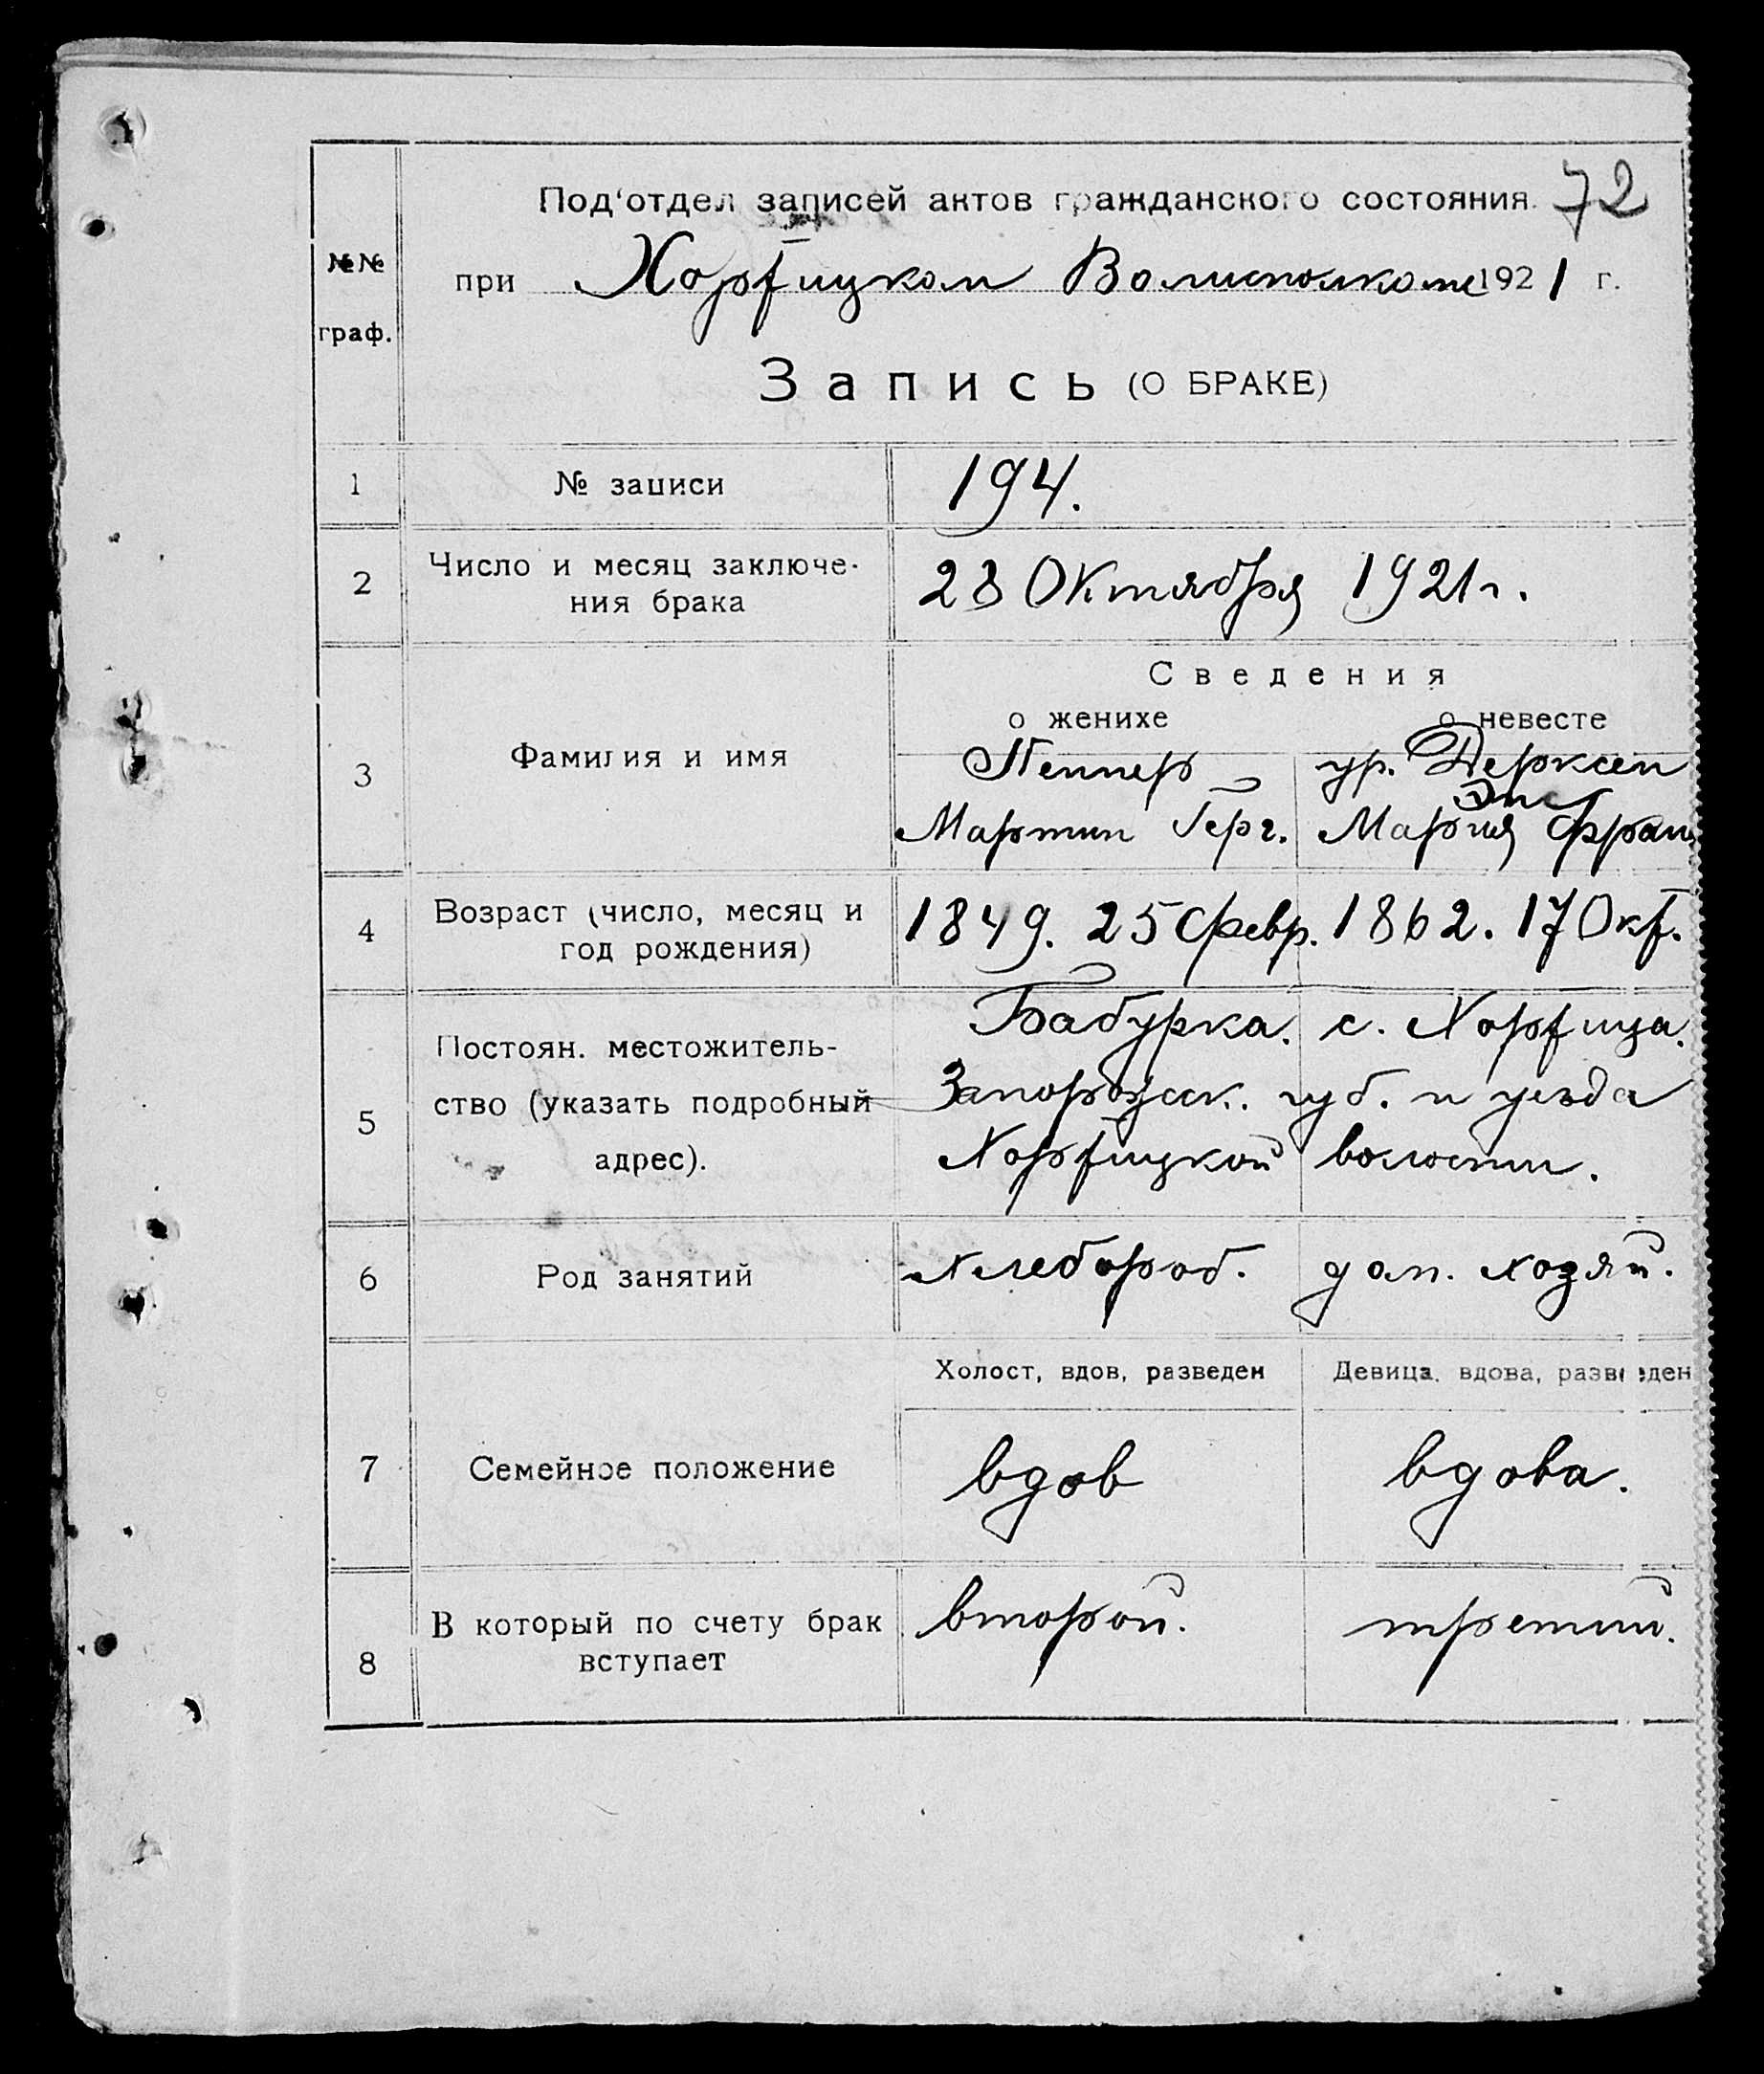 72
№№ граф.
Под‘отдел записей актов гражданского состояния.
при Хортицком Волисполкоме 1921 г.
Запись (О БРАКЕ)
1 № записи 194.
2 Число и месяц заключе-
ния брака 28 Октября 1921 г.
Сведения
о женихе о невесте
3 Фамилия и имя
Пеннер ур. Дерксен
Эпс
Мартин Герг. Мария Фран
4 Возраст (число, месяц и
год рождения) 1849. 25 февр. 1862. 17 Окт.
5 Постоян. местожитель-
ство (указать подробный
адрес).
Бабурка. с. Хортица.
Запорожск. губ. и уезда
Хортицкой волости.
6 Род занятий Хлебороб. дом. хозяй.
Холост, вдов, разведен Девица, вдова, разведен
7 Семейное положение вдов вдова.
8 В который по счету брак
вступает второй. третий.